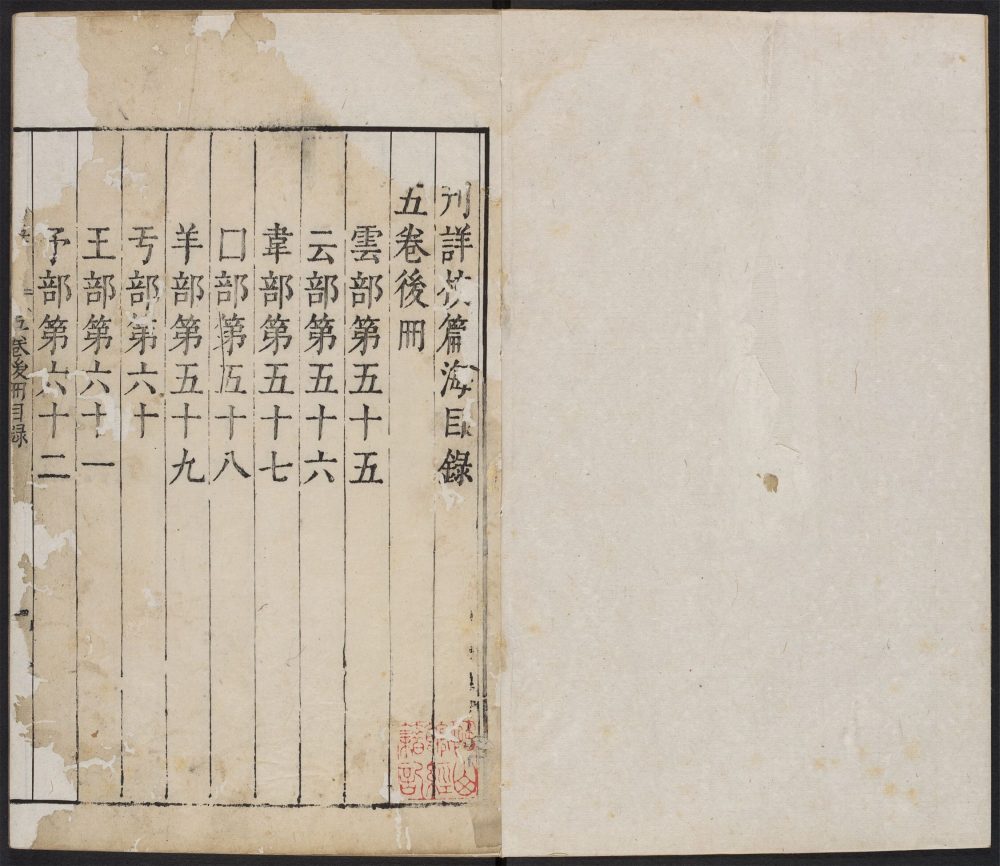 刋詳校篇海目錄
五卷後冊
雲部第五十五
云部第五十六
韋部第五十七
囗部第五十八
羊部第五十九
丂部第六十
王部第六十一
予部第六十二
五卷後冊目録